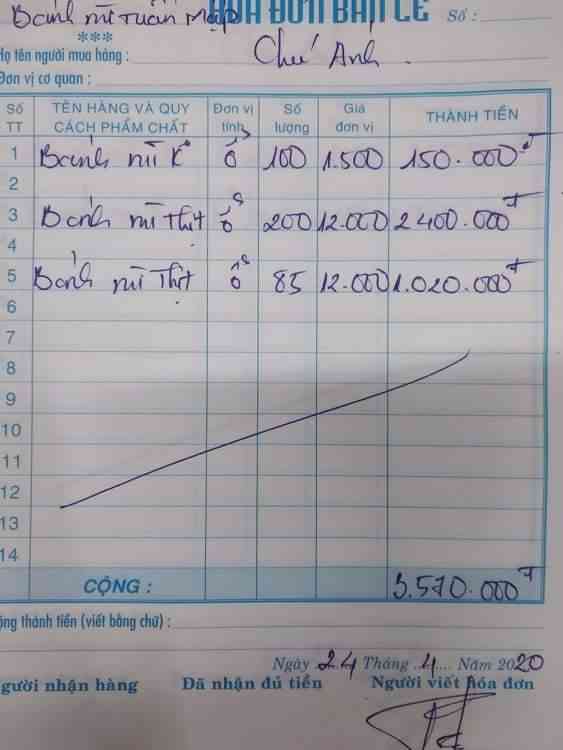 Bánh mì Tuấn Mập HÓA ĐƠN BÁN LẺ Số :
***
Họ tên người mua hàng : Chú Anh .
Đơn vị cơ quan :
Số TT TÊN HÀNG VÀ QUY CÁCH PHẨM CHẤT Đơn vị tính Số lượng Giá đơn vị THÀNH TIỀN
1 Bánh mì K ổ 100 1.500 150.000đ
2
3 Bánh mì thịt ổ 200 12.000 2400.000đ
4
5 Bánh mì Thịt ổ 85 12.000 1.020.000đ
6
7
8
9
10
11
12
13
14
CỘNG : 3.570.000đ
ộng thành tiền (viết bằng chữ) :
Ngày 24 Tháng 4 Năm 2020
gười nhận hàng Đã nhận đủ tiền Người viết hóa đơn